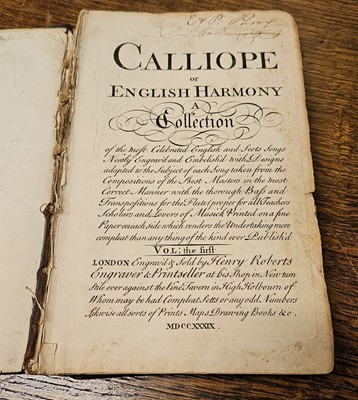 CALLIOPE
or
ENGLISH HARMONY
A
Collection
of the most Celebrated English and Scots Songs
Neatly Engrav'd and Embelish'd with Designs
adapted to the Subject of each Song taken from the
Compositions of the Best Masters in the most
Correct Manner with the thorough Bass and
Transpositions for the Flute (proper for all Teachers
Scholars and Lovers of Musick) Printed on a fine
Paper on each side which renders the Undertaking more
compleat than any thing of the kind ever Publish'd
VOL: the first
LONDON Engrav'd & Sold by Henry Roberts
Engraver & Printseller at his Shop in New turn
Stile over against the Vine Tavern in High Holbourn of
Whom may be had Compleat Setts or any odd Numbers
Likewise all sorts of Prints Maps Drawing Books &c.
MDCCXXXIX.